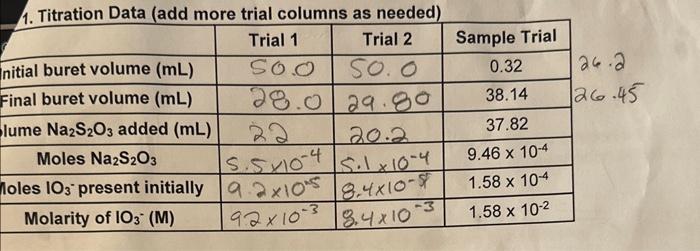 1. Titration Data (add more trial columns as needed)
Trial 1 Trial 2 Sample Trial
nitial buret volume (mL) 50.0 50.0 0.32 26.2
Final buret volume (mL) 28.0 29.80 38.14 26.45
lume Na2S2O3 added (mL) 22 20.2 37.82
Moles Na2S2O3 5.5x10-4 5.1x10-4 9.46 x 10-4
Moles IO3- present initially 9.2x10-5 8.4x10-5 1.58 x 10-4
Molarity of IO3- (M) 92x10-3 8.4x10-3 1.58 x 10-2